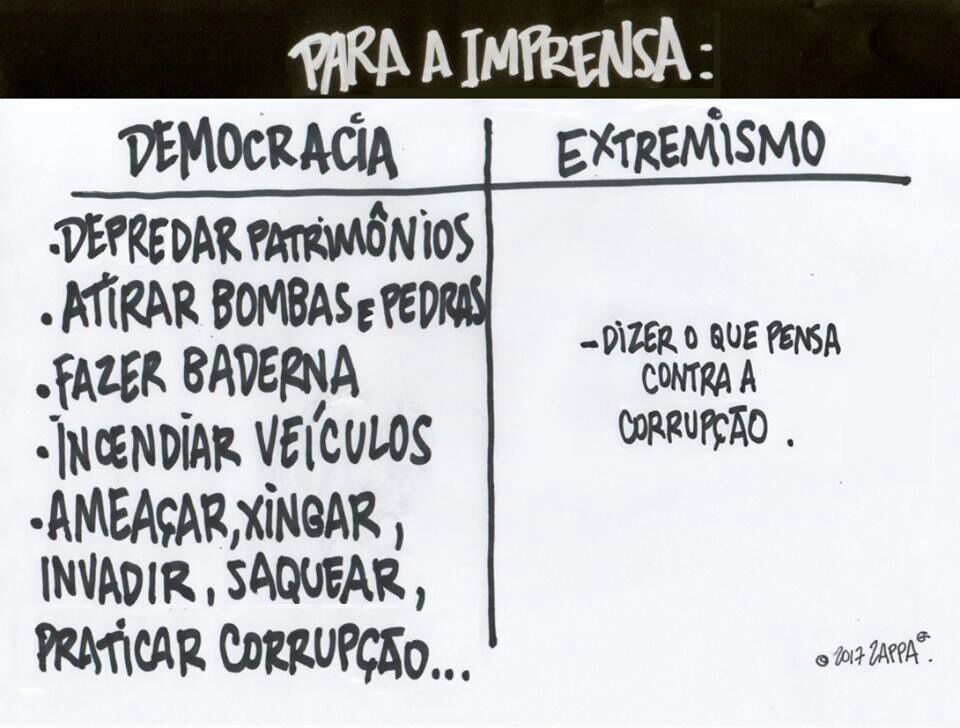 PARA A IMPRENSA:
DEMOCRACIA
• DEPREDAR PATRIMÔNIOS
• ATIRAR BOMBAS E PEDRAS
• FAZER BADERNA
• INCENDIAR VEÍCULOS
• AMEAÇAR, XINGAR,
INVADIR, SAQUEAR,
PRATICAR CORRUPÇÃO...
EXTREMISMO
- DIZER O QUE PENSA
CONTRA A
CORRUPÇÃO.
© 2017 ZAPPA